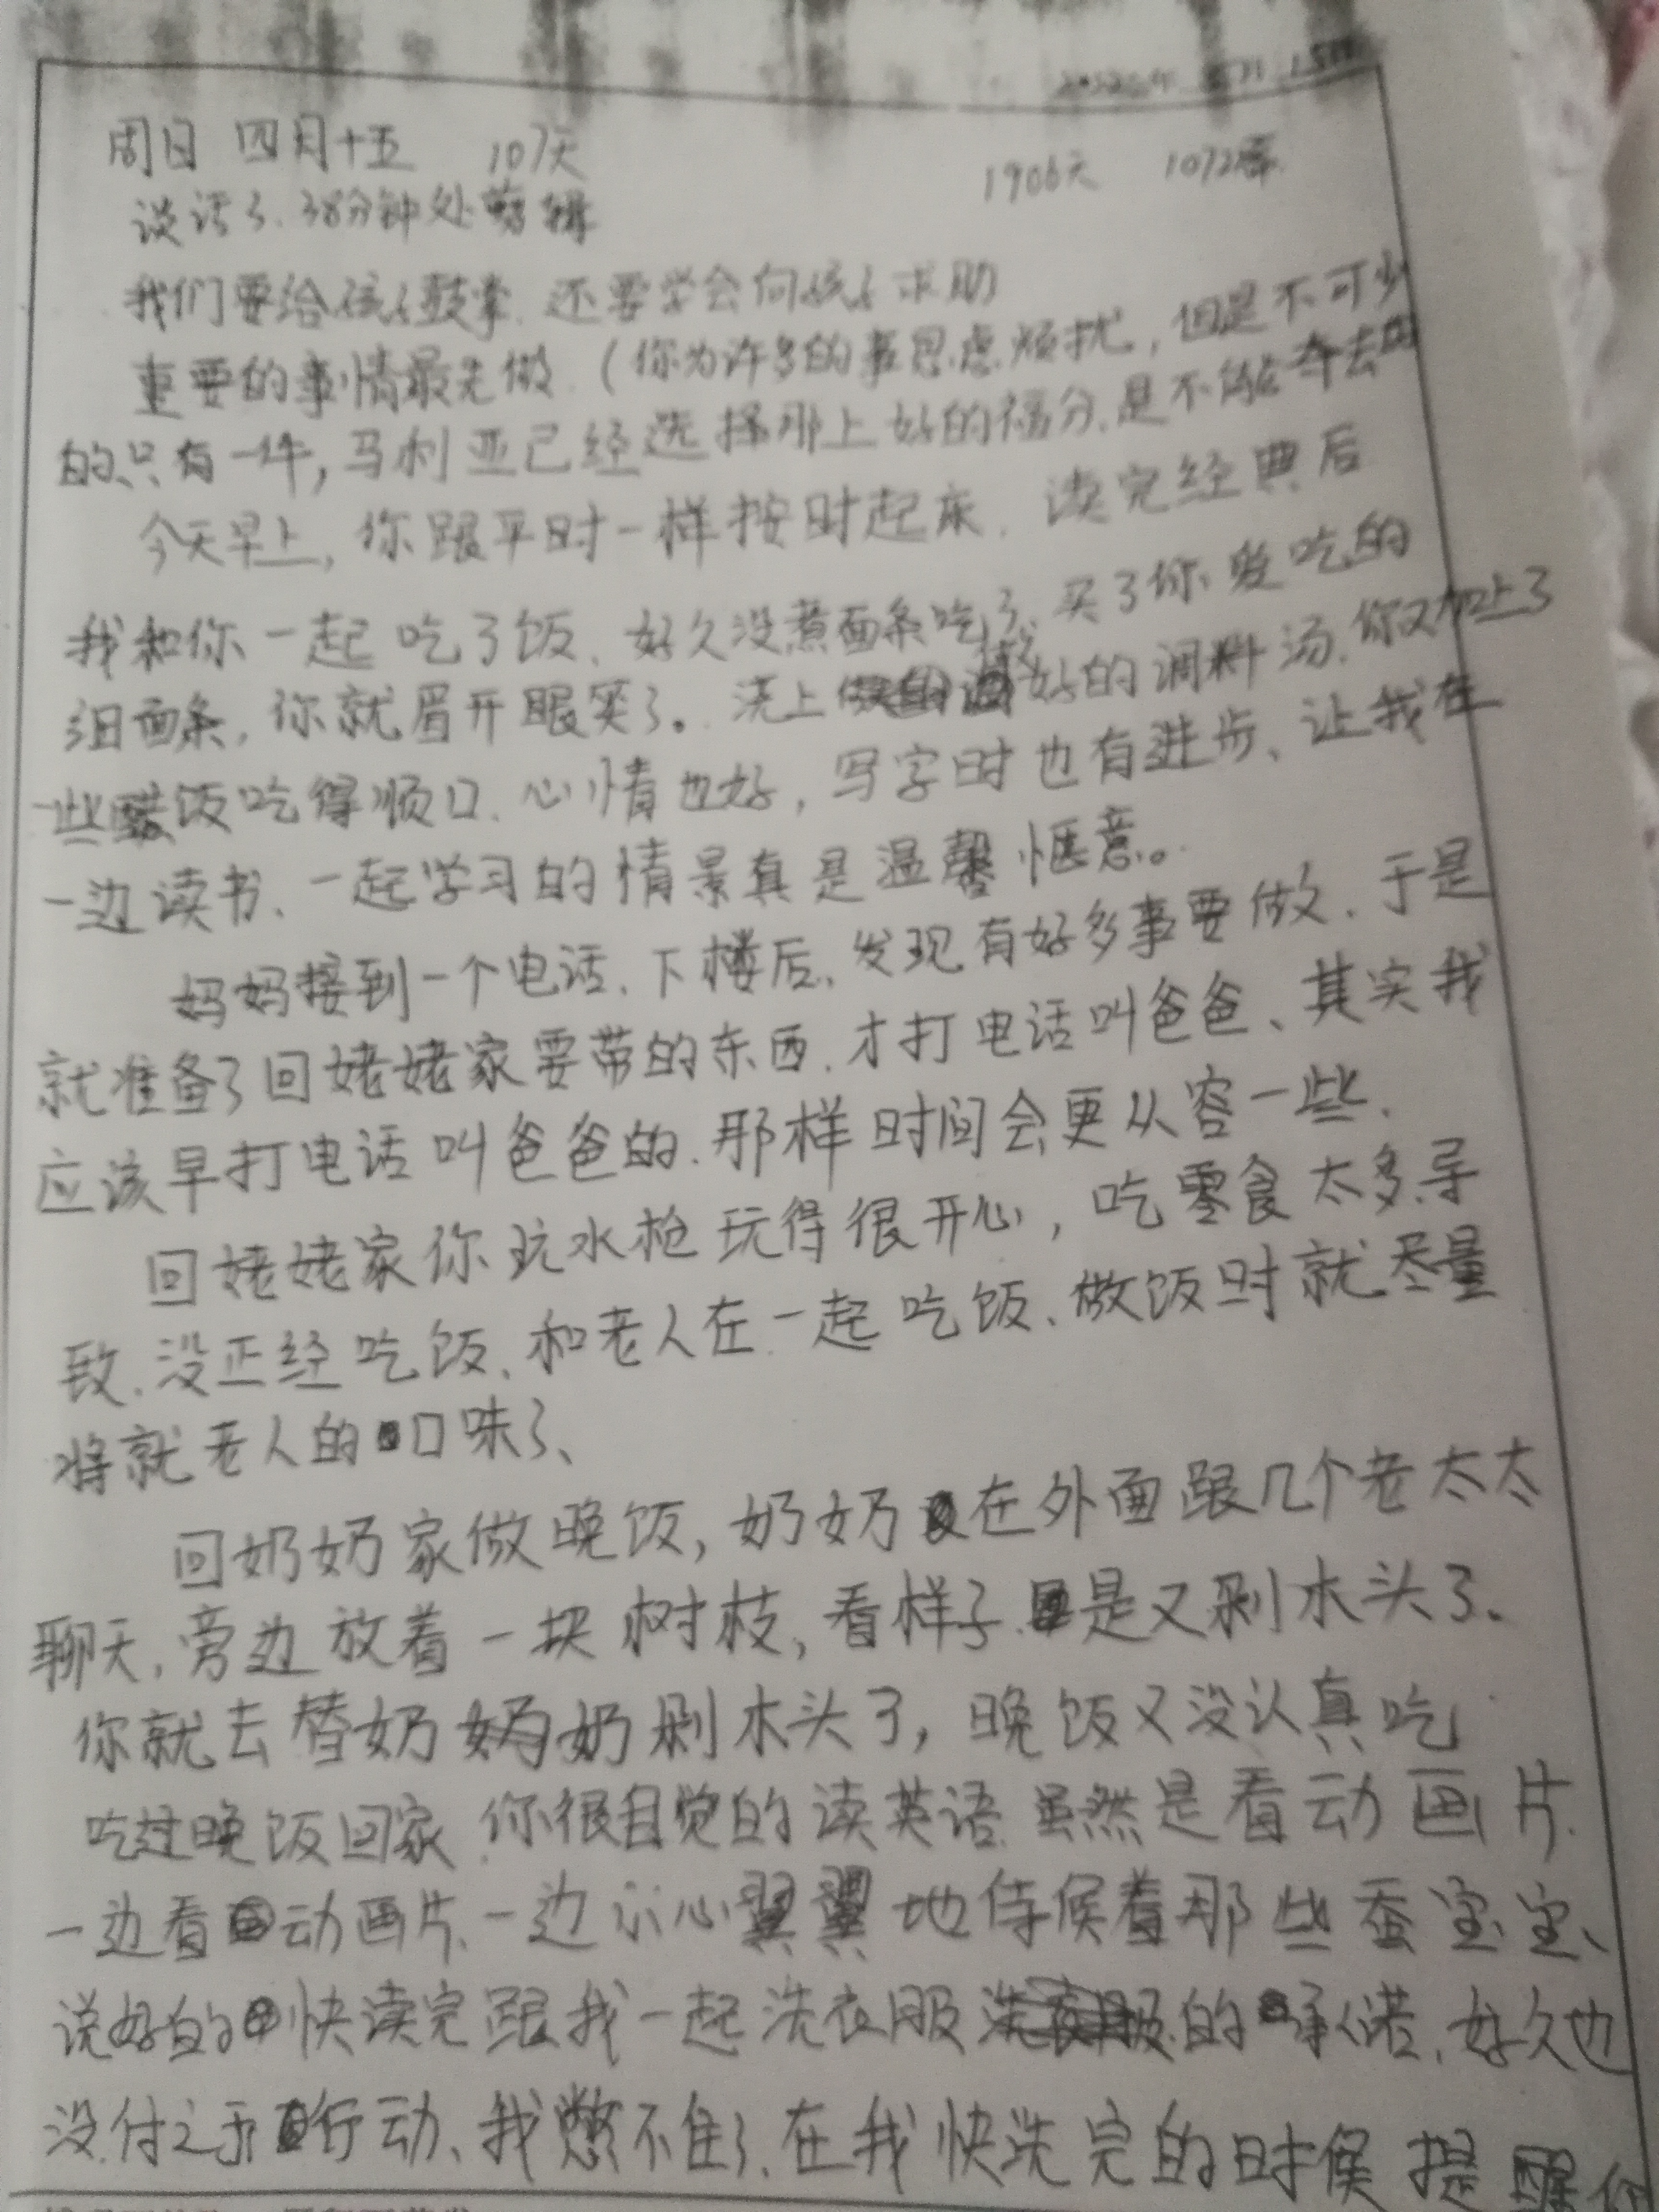 2022年5月15日
周日 四月十五 107天 1906天 1072篇
谈话了.38分钟处剪辑
我们要给孩子鼓掌.还要学会向孩子求助
重要的事情最先做.(你为许多的事思虑烦扰,但是不可少
的只有一件,马利亚已经选择那上好的福分.是不能夺去的
今天早上,你跟平时一样按时起床.读完经典后
我和你一起吃了饭、好久没煮面条吃了、买了你爱吃的
细面条,你就眉开眼笑了。浇上好的调料汤.你又加上了
一些醋饭吃得顺口.心情也好,写字时也有进步、让我在
一边读书、一起学习的情景真是温馨惬意。
妈妈接到一个电话.下楼后、发现有好多事要做.于是
就准备了回姥姥家要带的东西.才打电话叫爸爸、其实我
应该早打电话叫爸爸的.那样时间会更从容一些.
回姥姥家你玩水枪玩得很开心,吃零食太多.导
致.没正经吃饭、和老人在一起吃饭、做饭时就尽量
将就老人的口味了、
回奶奶家做晚饭,奶奶在外面跟几个老太太
聊天,旁边放着一块树枝,看样子.是又剁木头了、
你就去替奶奶剁木头了,晚饭又没认真吃
吃过晚饭回家.你很自觉的读英语.虽然是看动画片.
一边看动画片、一边小心翼翼地侍候着那些蚕宝宝、
说好的快读完跟我一起洗衣服的承诺.好久也
没付之于行动、我憋不住了.在我快洗完的时候提醒你